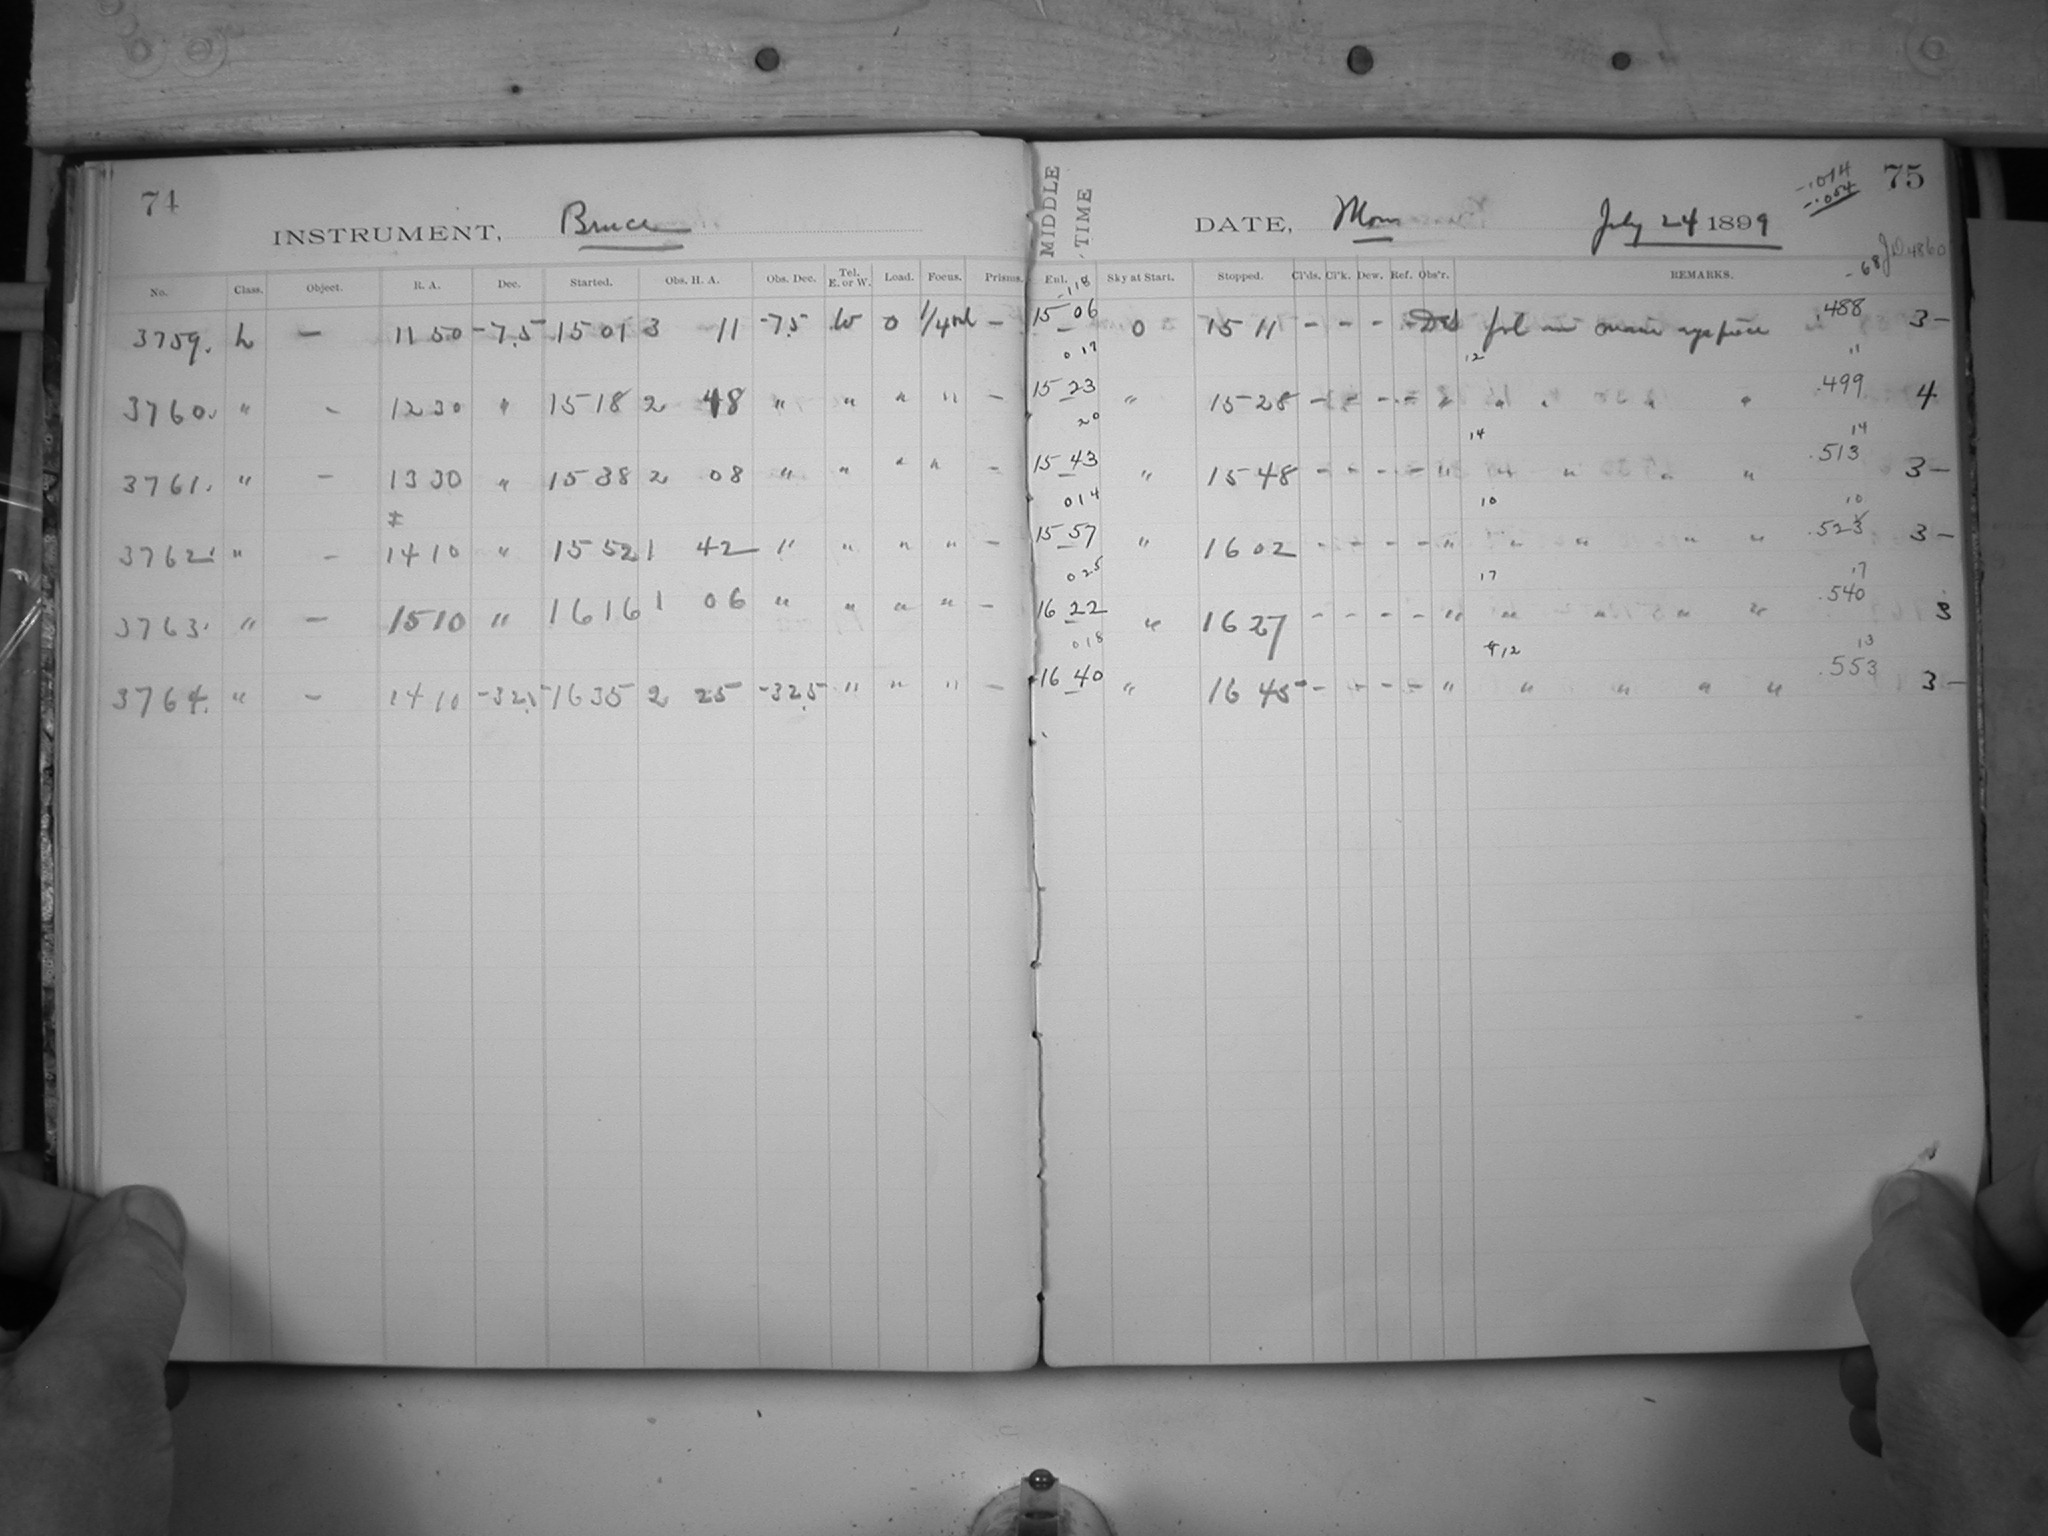 74
INSTRUMENT, Bruce
No. Class. Object. R. A. Dec. Started. Obs. H. A. Obs. Dec. Tel. E. or W. Load. Focus. Prisms.
3759. L — 11 50 -7.5 15 01 3 11 -7.5 W 0 1/4 —
3760. " - 12 30 " 15 18 2 48 " " " " —
3761. " — 13 30 " 15 38 2 08 " " " " —
3762. " - 14 10 " 15 52 1 42 " " " " —
3763. " — 15 10 " 16 16 1 06 " " " " —
3764. " — 14 10 -32.5 16 35 2 25 -32.5 " " " —
MIDDLE TIME
75
-.014
-.004
DATE, Mon July 24 1899
JD 4860
-68
Eul. Sky at Start. Stopped. Cl'ds. Cl'k. Dew. Ref. Obs'r. REMARKS.
-118
15 06 0 15 11 - - - - .488 3-
017 12 11
15 23 " 15 28 - - - - " " " " " .499 4
20 14 14
15 43 " 15 48 - - - - " " " " " .513 3-
014 10 10
15 57 " 16 02 - - - - " " " " " .523 3-
025 17 17
16 22 " 16 27 - - - - " " " " " .540 3
018 12 13
16 40 " 16 45 - - - - " " " " " .553 3-